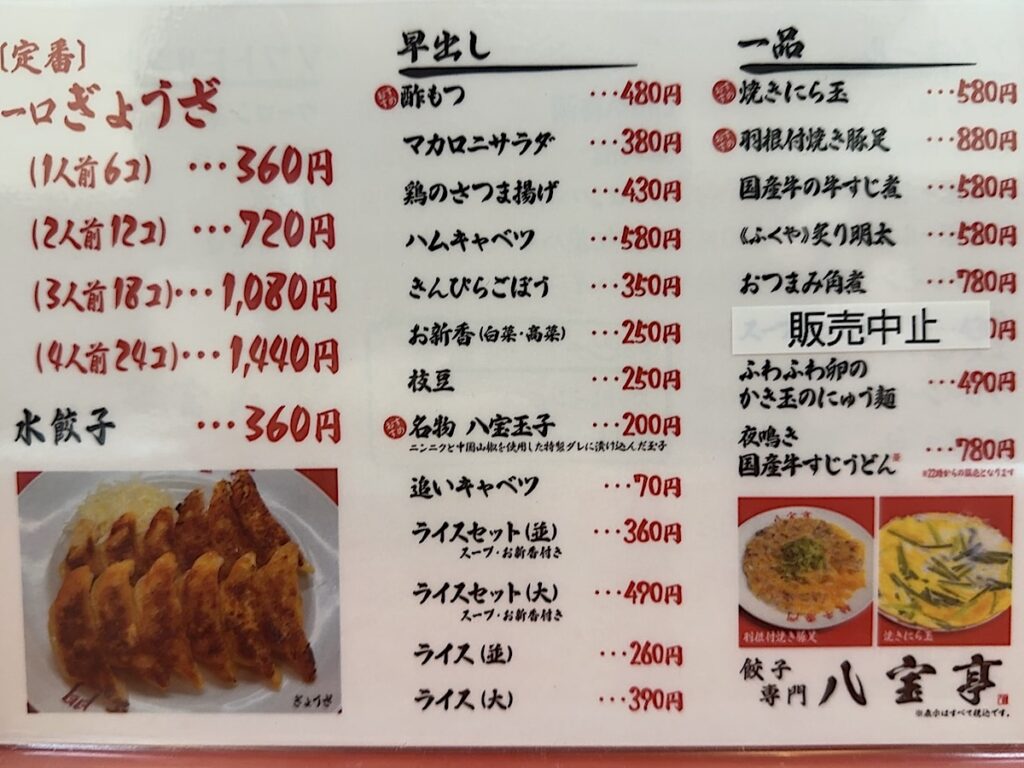 〔定番〕
一口ぎょうざ
(1人前6コ) …360円
(2人前12コ) …720円
(3人前18コ) …1,080円
(4人前24コ) …1,440円
水餃子 …360円
ぎょうざ
早出し
酢もつ …480円
マカロニサラダ …380円
鶏のさつま揚げ …430円
ハムキャベツ …580円
きんぴらごぼう …350円
お新香(白菜・高菜) …250円
枝豆 …250円
おすすめ 名物 八宝玉子 …200円
ニンニクと中国山椒を使用した特製ダレに漬け込んだ玉子
追いキャベツ …70円
ライスセット(並) …360円
スープ・お新香付き
ライスセット(大) …490円
スープ・お新香付き
ライス(並) …260円
ライス(大) …390円
一品
焼きにら玉 …580円
羽根付焼き豚足 …880円
国産牛の牛すじ煮 …580円
《ふくや》炙り明太 …580円
おつまみ角煮 …780円
販売中止
0円
ふわふわ卵の
かき玉のにゅう麺 …490円
夜鳴き
国産牛すじうどん※ …780円
※22時からの販売となります
八宝亭
羽根付焼き豚足
焼きにら玉
餃子
専門 八宝亭
※表示はすべて税込です。